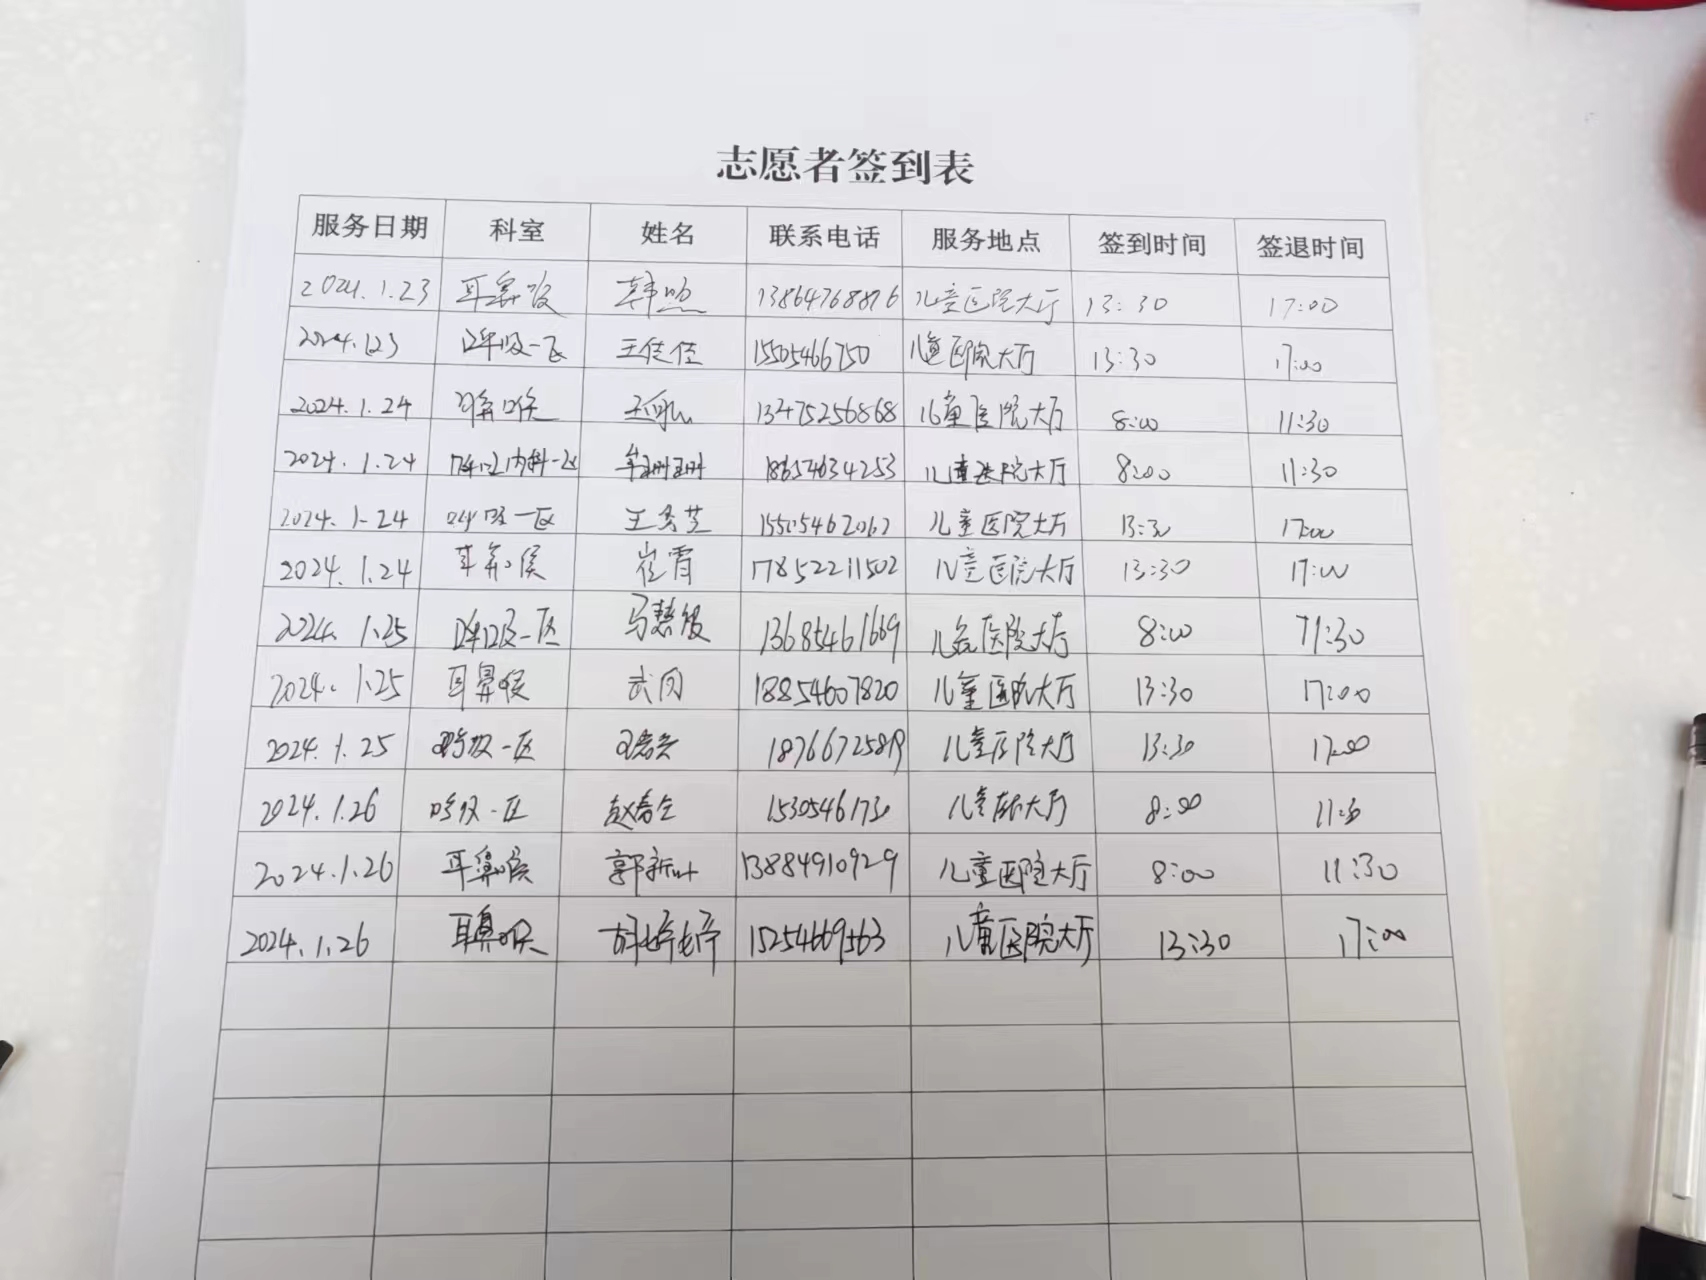 志愿者签到表
服务日期 科室 姓名 联系电话 服务地点 签到时间 签退时间
2024.1.23 耳鼻喉 13864768876 儿童医院大厅 13:30 17:00
2024.1.23 呼吸一区 王佳佳 15505466750 儿童医院大厅 13:30 17:00
2024.1.24 耳鼻喉 13475256868 儿童医院大厅 8:00 11:30
2024.1.24 呼吸内科一区 牟珊珊 18654634253 儿童医院大厅 8:00 11:30
2024.1.24 呼吸一区 王秀芝 15505462062 儿童医院大厅 13:30 17:00
2024.1.24 耳鼻喉 崔霄 17852211502 儿童医院大厅 13:30 17:00
2024.1.25 呼吸一区 马慧敏 13685461669 儿童医院大厅 8:00 11:30
2024.1.25 耳鼻喉 武闪 18854607820 儿童医院大厅 13:30 17:00
2024.1.25 呼吸一区 儿童医院大厅 13:30 17:00
2024.1.26 呼吸一区 赵春兰 儿童医院大厅 8:00 11:30
2024.1.26 耳鼻喉 郭新叶 13884910929 儿童医院大厅 8:00 11:30
2024.1.26 耳鼻喉 胡婷婷 15254669563 儿童医院大厅 13:30 17:00